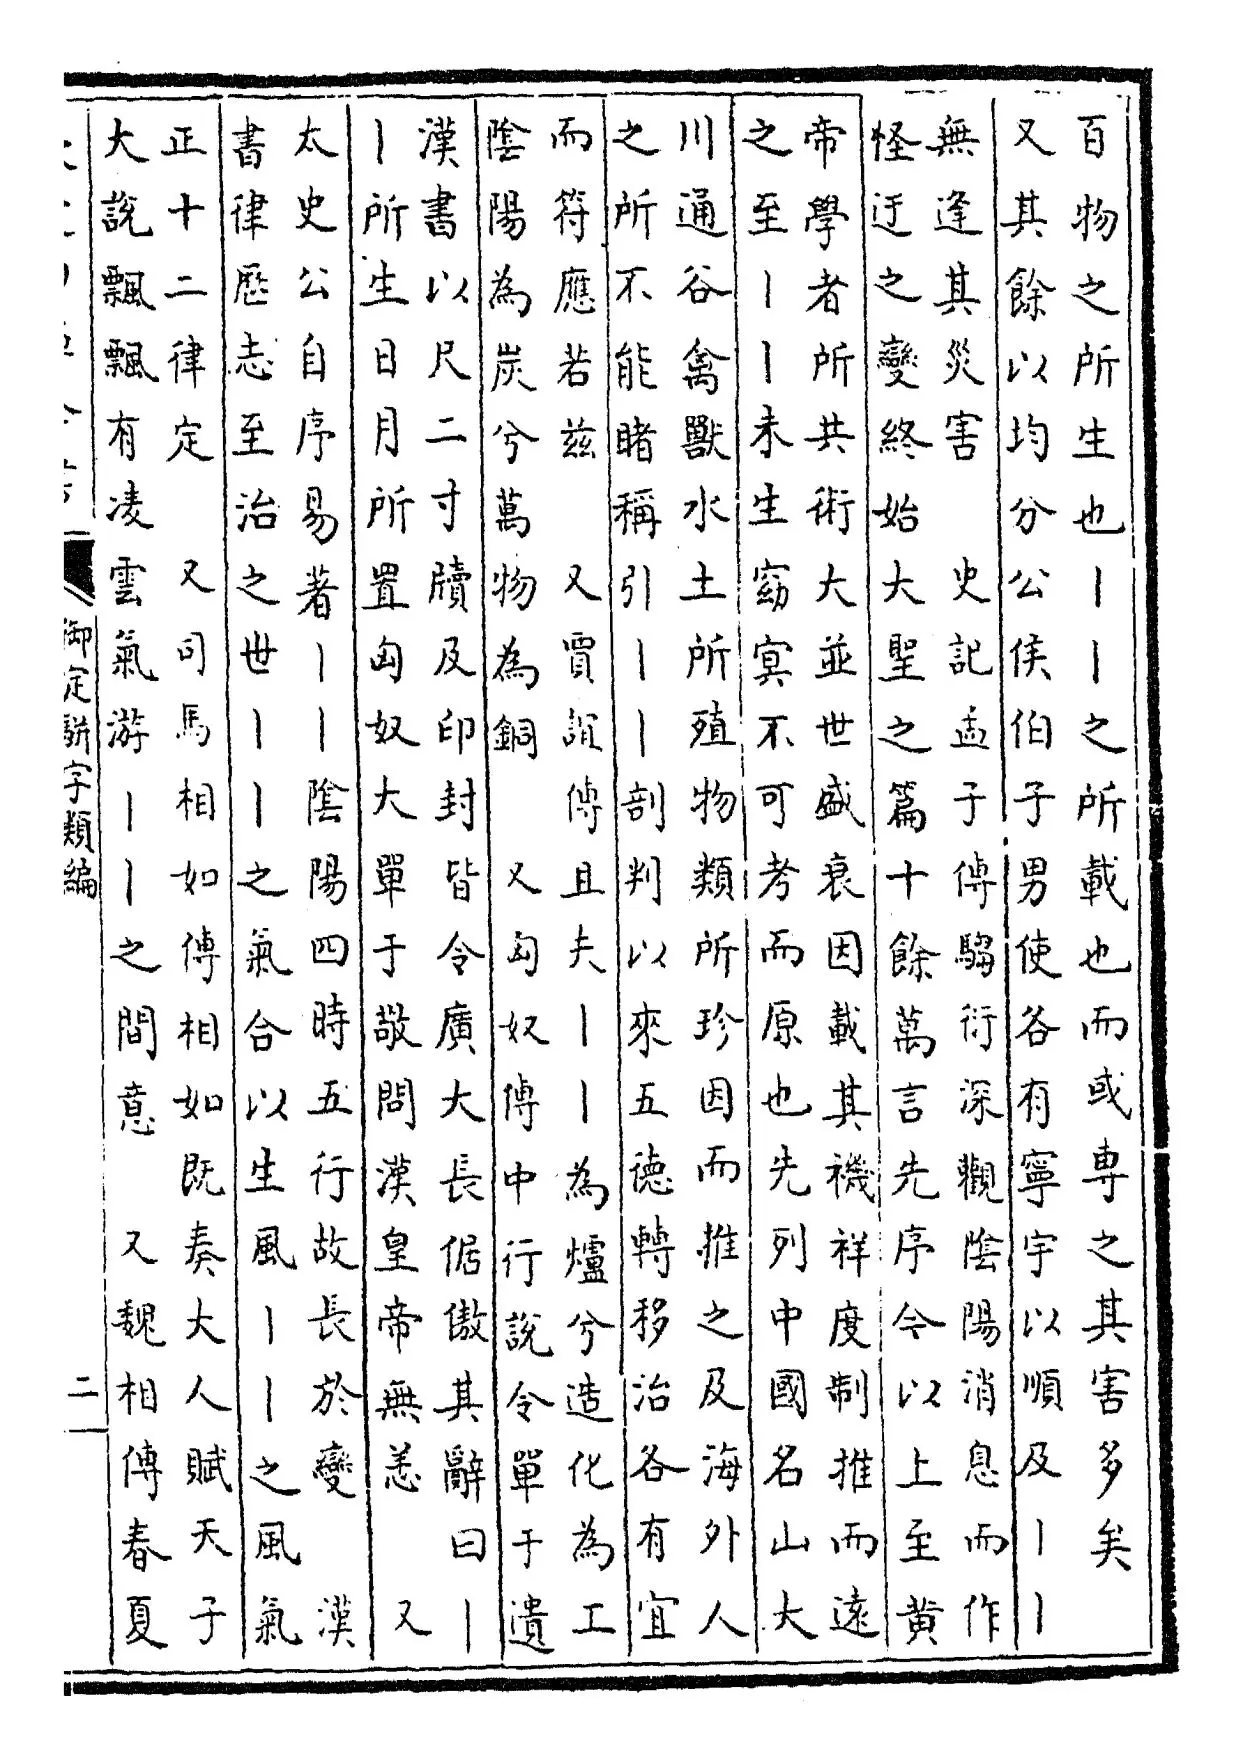 百物之所生也｜｜之所載也而或專之其害多矣
又其餘以均分公侯伯子男使各有寧宇以順及｜｜
無逢其災害　史記孟子傳騶衍深觀陰陽消息而作
怪迂之變終始大聖之篇十餘萬言先序今以上至黄
帝學者所共術大並世盛衰因載其禨祥度制推而遠
之至｜｜未生窈冥不可考而原也先列中國名山大
川通谷禽獸水土所殖物類所珍因而推之及海外人
之所不能睹稱引｜｜剖判以來五德轉移治各有宜
而符應若兹　又賈誼傳且夫｜｜為爐兮造化為工
陰陽為炭兮萬物為銅　又匈奴傳中行説令單于遺
漢書以尺二寸牘及印封皆令廣大長倨傲其辭曰｜
｜所生日月所置匈奴大單于敬問漢皇帝無恙　又
太史公自序易著｜｜陰陽四時五行故長於變　漢
書律厯志至治之世｜｜之氣合以生風｜｜之風氣
正十二律定　又司馬相如傳相如既奏大人賦天子
大説飄飄有凌雲氣游｜｜之間意　又魏相傳春夏
御定駢字類編
二